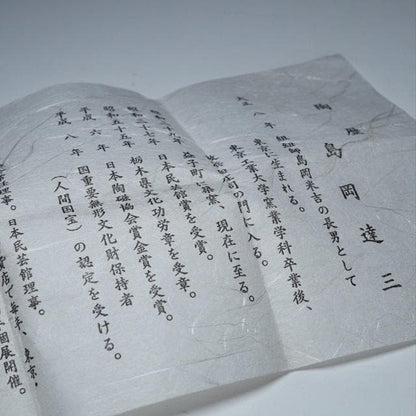 陶歴
島岡達三
大正八年 組紐師島岡米吉の長男として
東京に生まれる。
東京工業大学窯業学科卒業後、
の門に入る。
益子町に築窯、現在に至る。
日本民芸館賞を受賞。
昭和五十五年 栃木県文化功労章を受章。
平成六年 日本陶磁協会賞金賞を受賞。
平成八年 国重要無形文化財保持者
(人間国宝)の認定を受ける。
日本民芸館理事。
で毎年、東京、
個展開催。